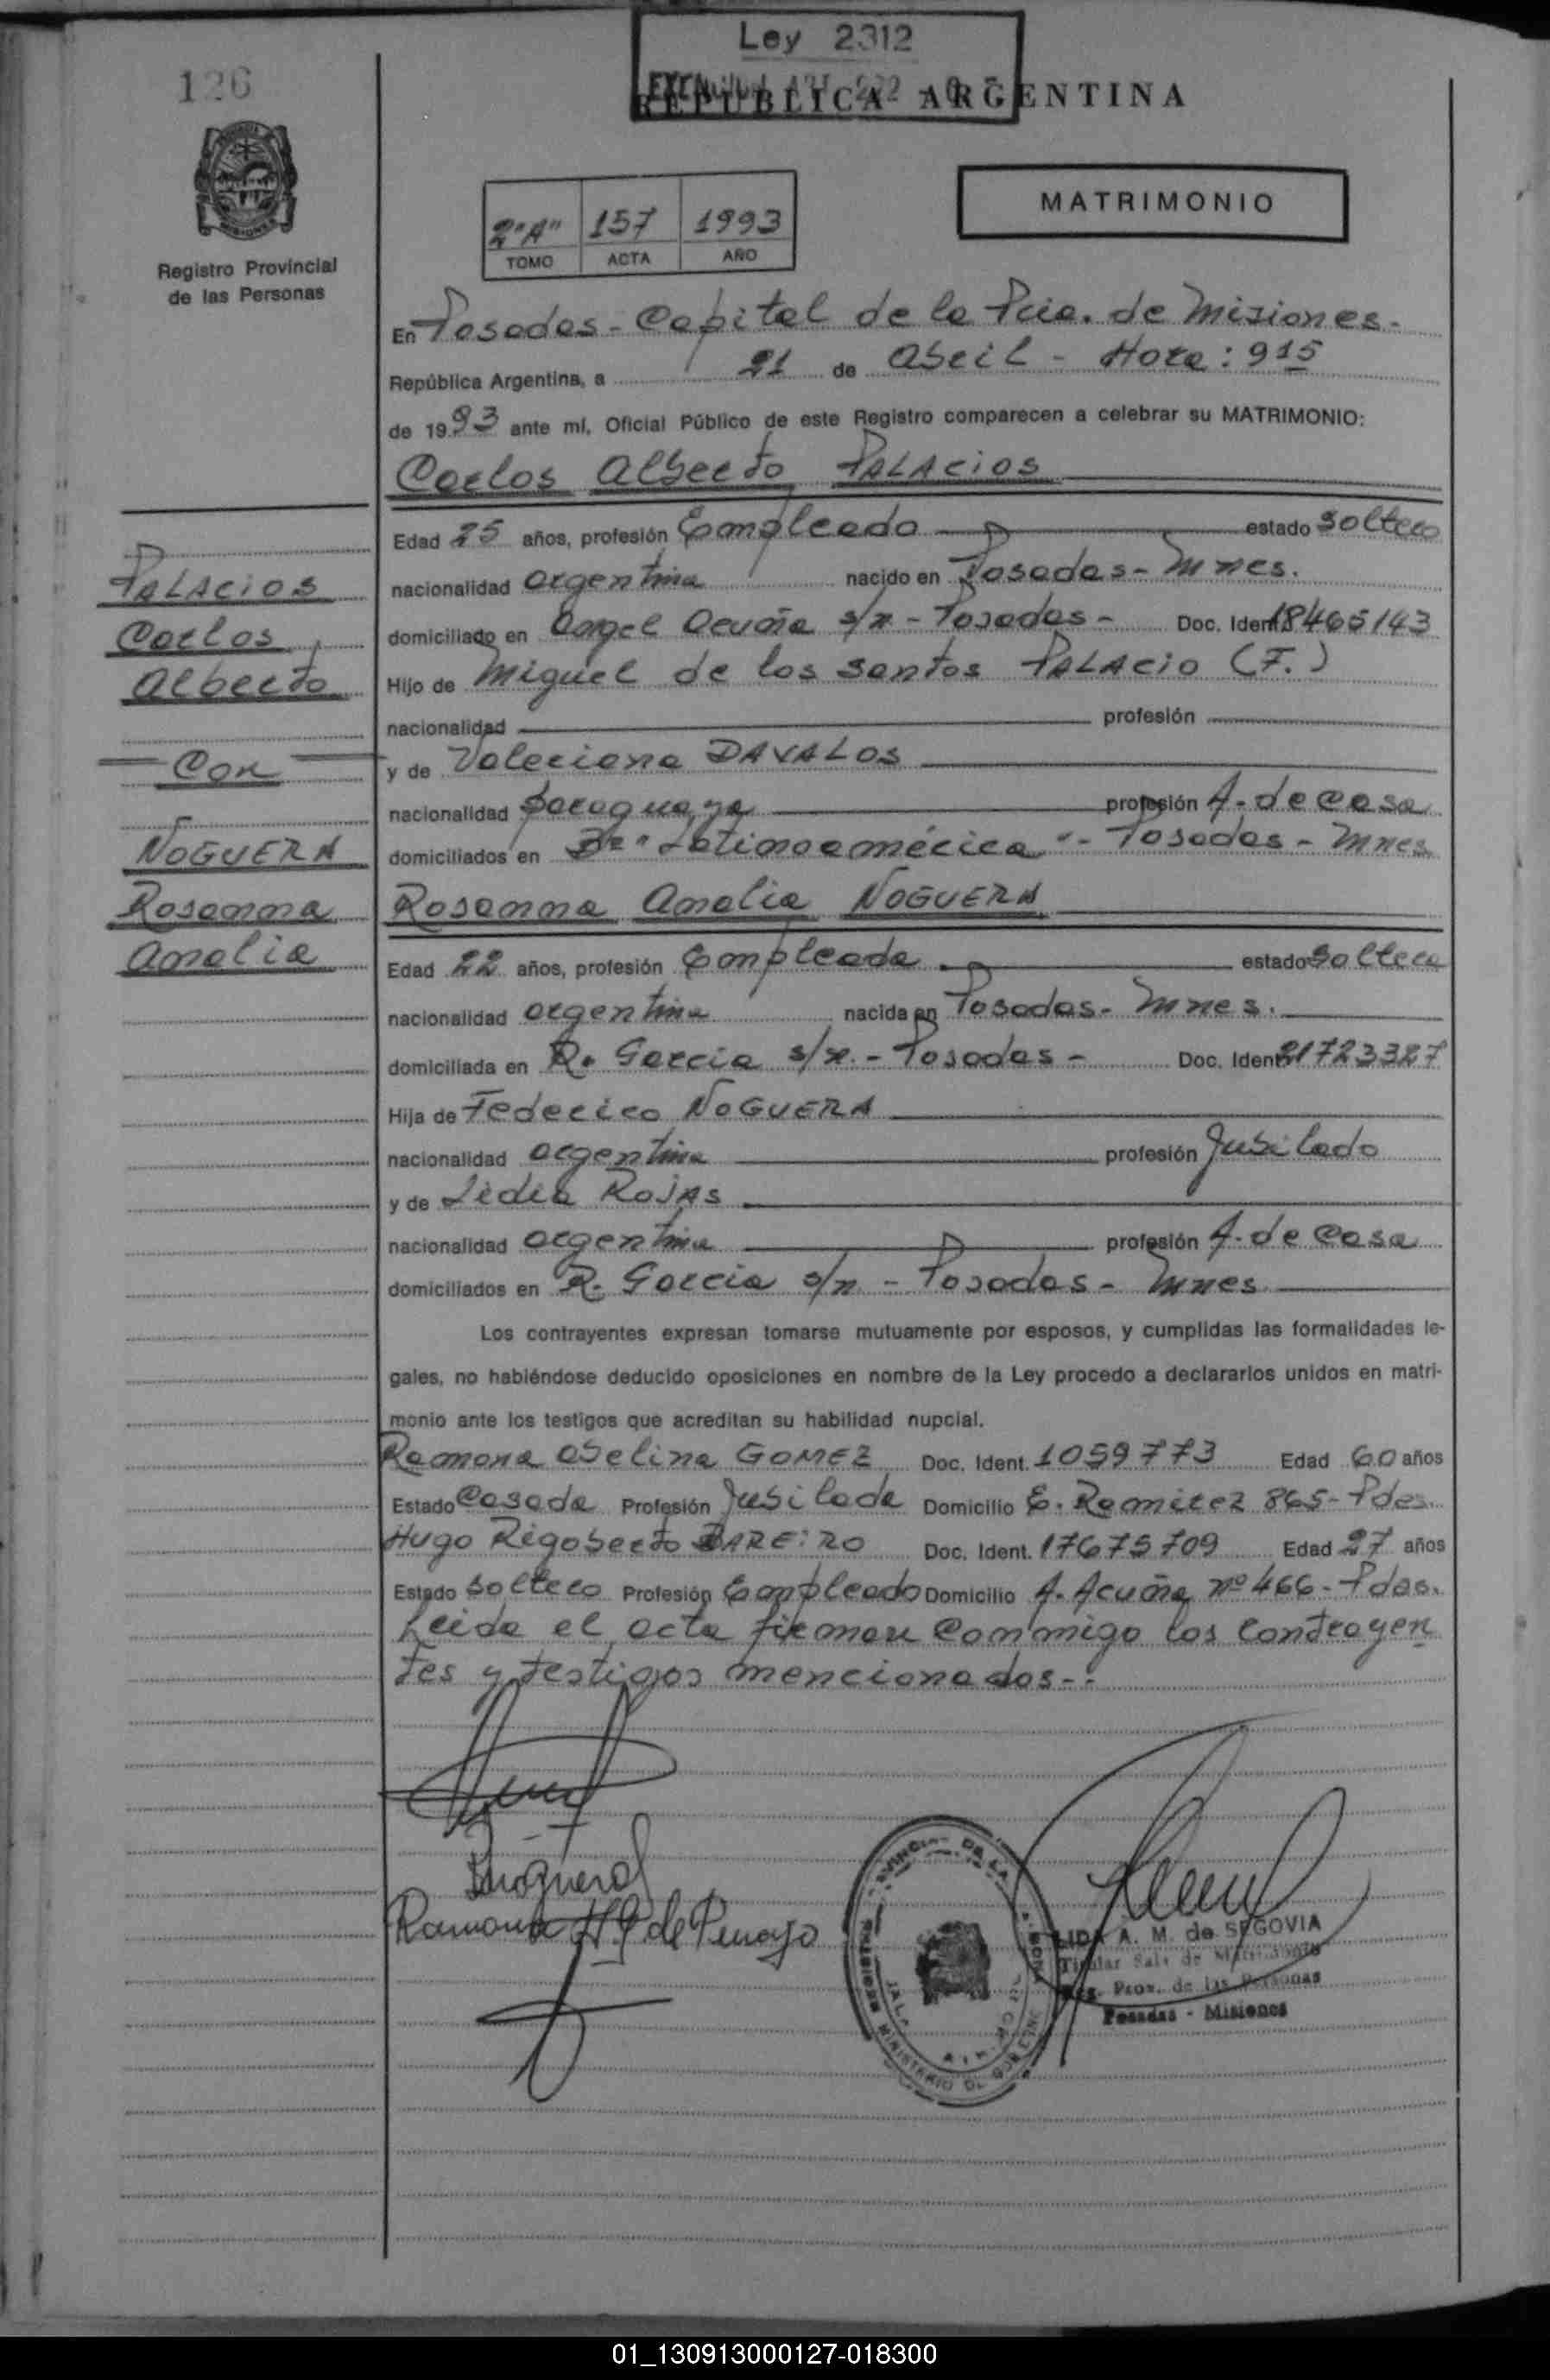 Ley 2312
126
REPUBLICA ARGENTINA
MATRIMONIO
2"A" 157 1993
TOMO ACTA AÑO
Registro Provincial
de las Personas
En Posadas - Capital de la Pcia. de Misiones.
República Argentina, a 21 de Abril - Hora: 915
de 1993 ante mí, Oficial Público de este Registro comparecen a celebrar su MATRIMONIO:
Carlos Alberto PALACIOS
Edad 25 años, profesión Empleado estado Soltero
nacionalidad argentina nacido en Posadas - Mnes.
domiciliado en Angel Acuña s/n - Posadas - Doc. Ident. 18465143
Hijo de Miguel de los Santos PALACIO (F.)
nacionalidad profesión
y de Valeriana DAVALOS
nacionalidad paraguaya profesión A. de casa
domiciliados en Bº "Latinoamérica" - Posadas - Mnes
Rosanna Amalia NOGUERA
Edad 22 años, profesión Empleada estado Soltera
nacionalidad argentina nacida en Posadas - Mnes.
domiciliada en R. Garcia s/n. - Posadas - Doc. Ident. 21723327
Hija de Federico NOGUERA
nacionalidad argentina profesión Jubilado
y de Lidia ROJAS
nacionalidad argentina profesión A. de casa
domiciliados en R. Garcia s/n - Posadas - Mnes
Los contrayentes expresan tomarse mutuamente por esposos, y cumplidas las formalidades le-
gales, no habiéndose deducido oposiciones en nombre de la Ley procedo a declararlos unidos en matri-
monio ante los testigos que acreditan su habilidad nupcial.
Ramona Avelina GOMEZ Doc. Ident. 1059773 Edad 60 años
Estado Casada Profesión Jubilada Domicilio E. Ramirez 865 - Pdas.
Hugo Rigoberto BAREIRO Doc. Ident. 17675709 Edad 27 años
Estado Soltero Profesión Empleado Domicilio A. Acuña nº 466 - Pdas.
Leida el acta firman conmigo los contrayen
tes y testigos mencionados - -
PALACIOS
Carlos
Alberto
Con
NOGUERA
Rosanna
Amalia
Ramona de Penayo
LIDA A. M. de SEGOVIA
Titular Sala de Matrimonio
Reg. Prov. de las Personas
Posadas - Misiones
01_130913000127-018300